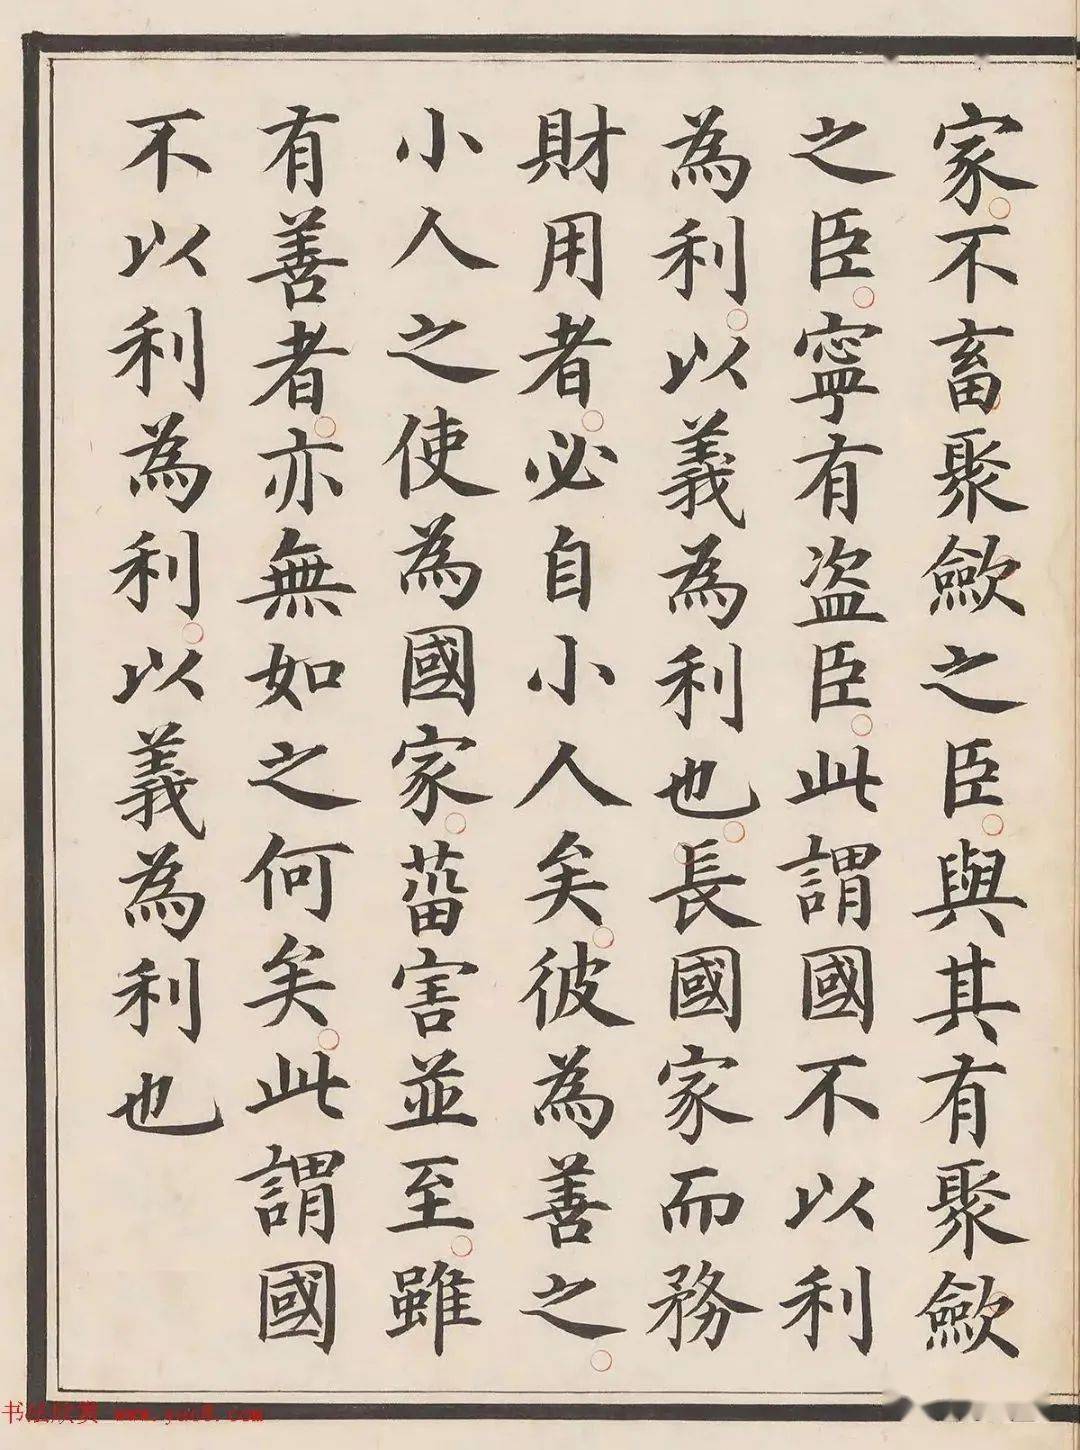 家不畜聚斂之臣與其有聚斂
之臣寧有盜臣此謂國不以利
為利以義為利也長國家而務
財用者必自小人矣彼為善之
小人之使為國家菑害並至雖
有善者亦無如之何矣此謂國
不以利為利以義為利也
书法欣赏 www.yac8.com